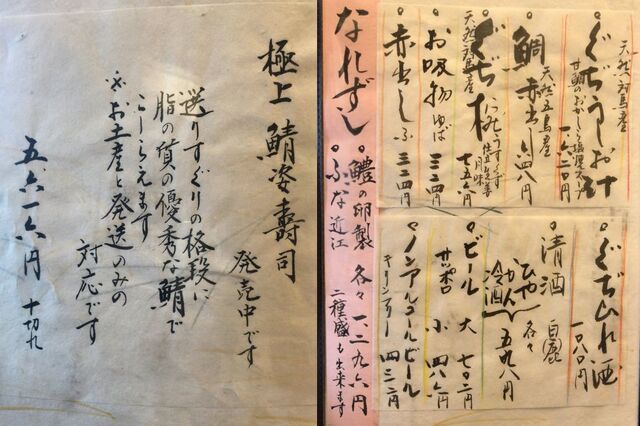 極上 鯖姿壽司
発売中です
選りすぐりの格段に
脂の質の優秀な鯖で
こしらえます
※お土産と発送のみの
対応です
五、六一六円 十切れ
天然対馬産
ぐぢうしお汁
甘鯛のおかしら
一、六二〇円
天然五島産
鯛赤出し 六四八円
天然対馬産
ぐぢ椀
七五六円
お吸物 ゆば 三二四円
赤出し 三二四円
なれずし
鱧の卵製 各々 一、二九六円
ふな近江
二種盛も出来ます
ぐぢひれ酒
一〇八〇円
清酒 白鷹
ひや
かん
冷酒
各々 五九八円
ビール 大 七〇二円
サッポロ 小 四八六円
ノンアルコールビール
キリンフリー 四三二円